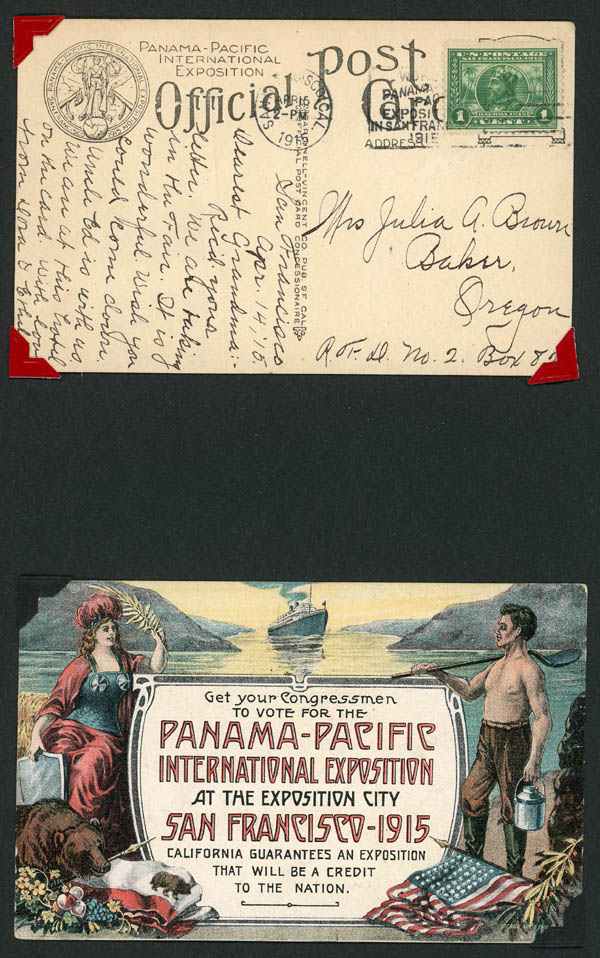 PANAMA-PACIFIC
INTERNATIONAL
EXPOSITION
Official Post Card
U.S. POSTAGE
SAN FRANCISCO 1915
1 CENT 1
SAN FRANCISCO, CAL.
APR 15
2-PM
1915
PANAMA-PAC
EXPOSI
IN SAN FRAN
1915
ADDRESS
CARDINELL-VINCENT CO. PUB. SF. CAL.
OFFICIAL POST CARD CONCESSIONAIRE
San Francisco
Apr. 14, '15.
Dearest Grandma:-
Rec'd your
letter. We are taking
in the Fair. It is
wonderful wish you
could come down,
Uncle Ed is with us
We are at this hotel
on the card with love
from
Mrs Julia A. Brown
Baker,
Oregon
R.F.D. No. 2. Box 8
Get your Congressmen
TO VOTE FOR THE
PANAMA-PACIFIC
INTERNATIONAL EXPOSITION
AT THE EXPOSITION CITY
SAN FRANCISCO-1915
CALIFORNIA GUARANTEES AN EXPOSITION
THAT WILL BE A CREDIT
TO THE NATION.